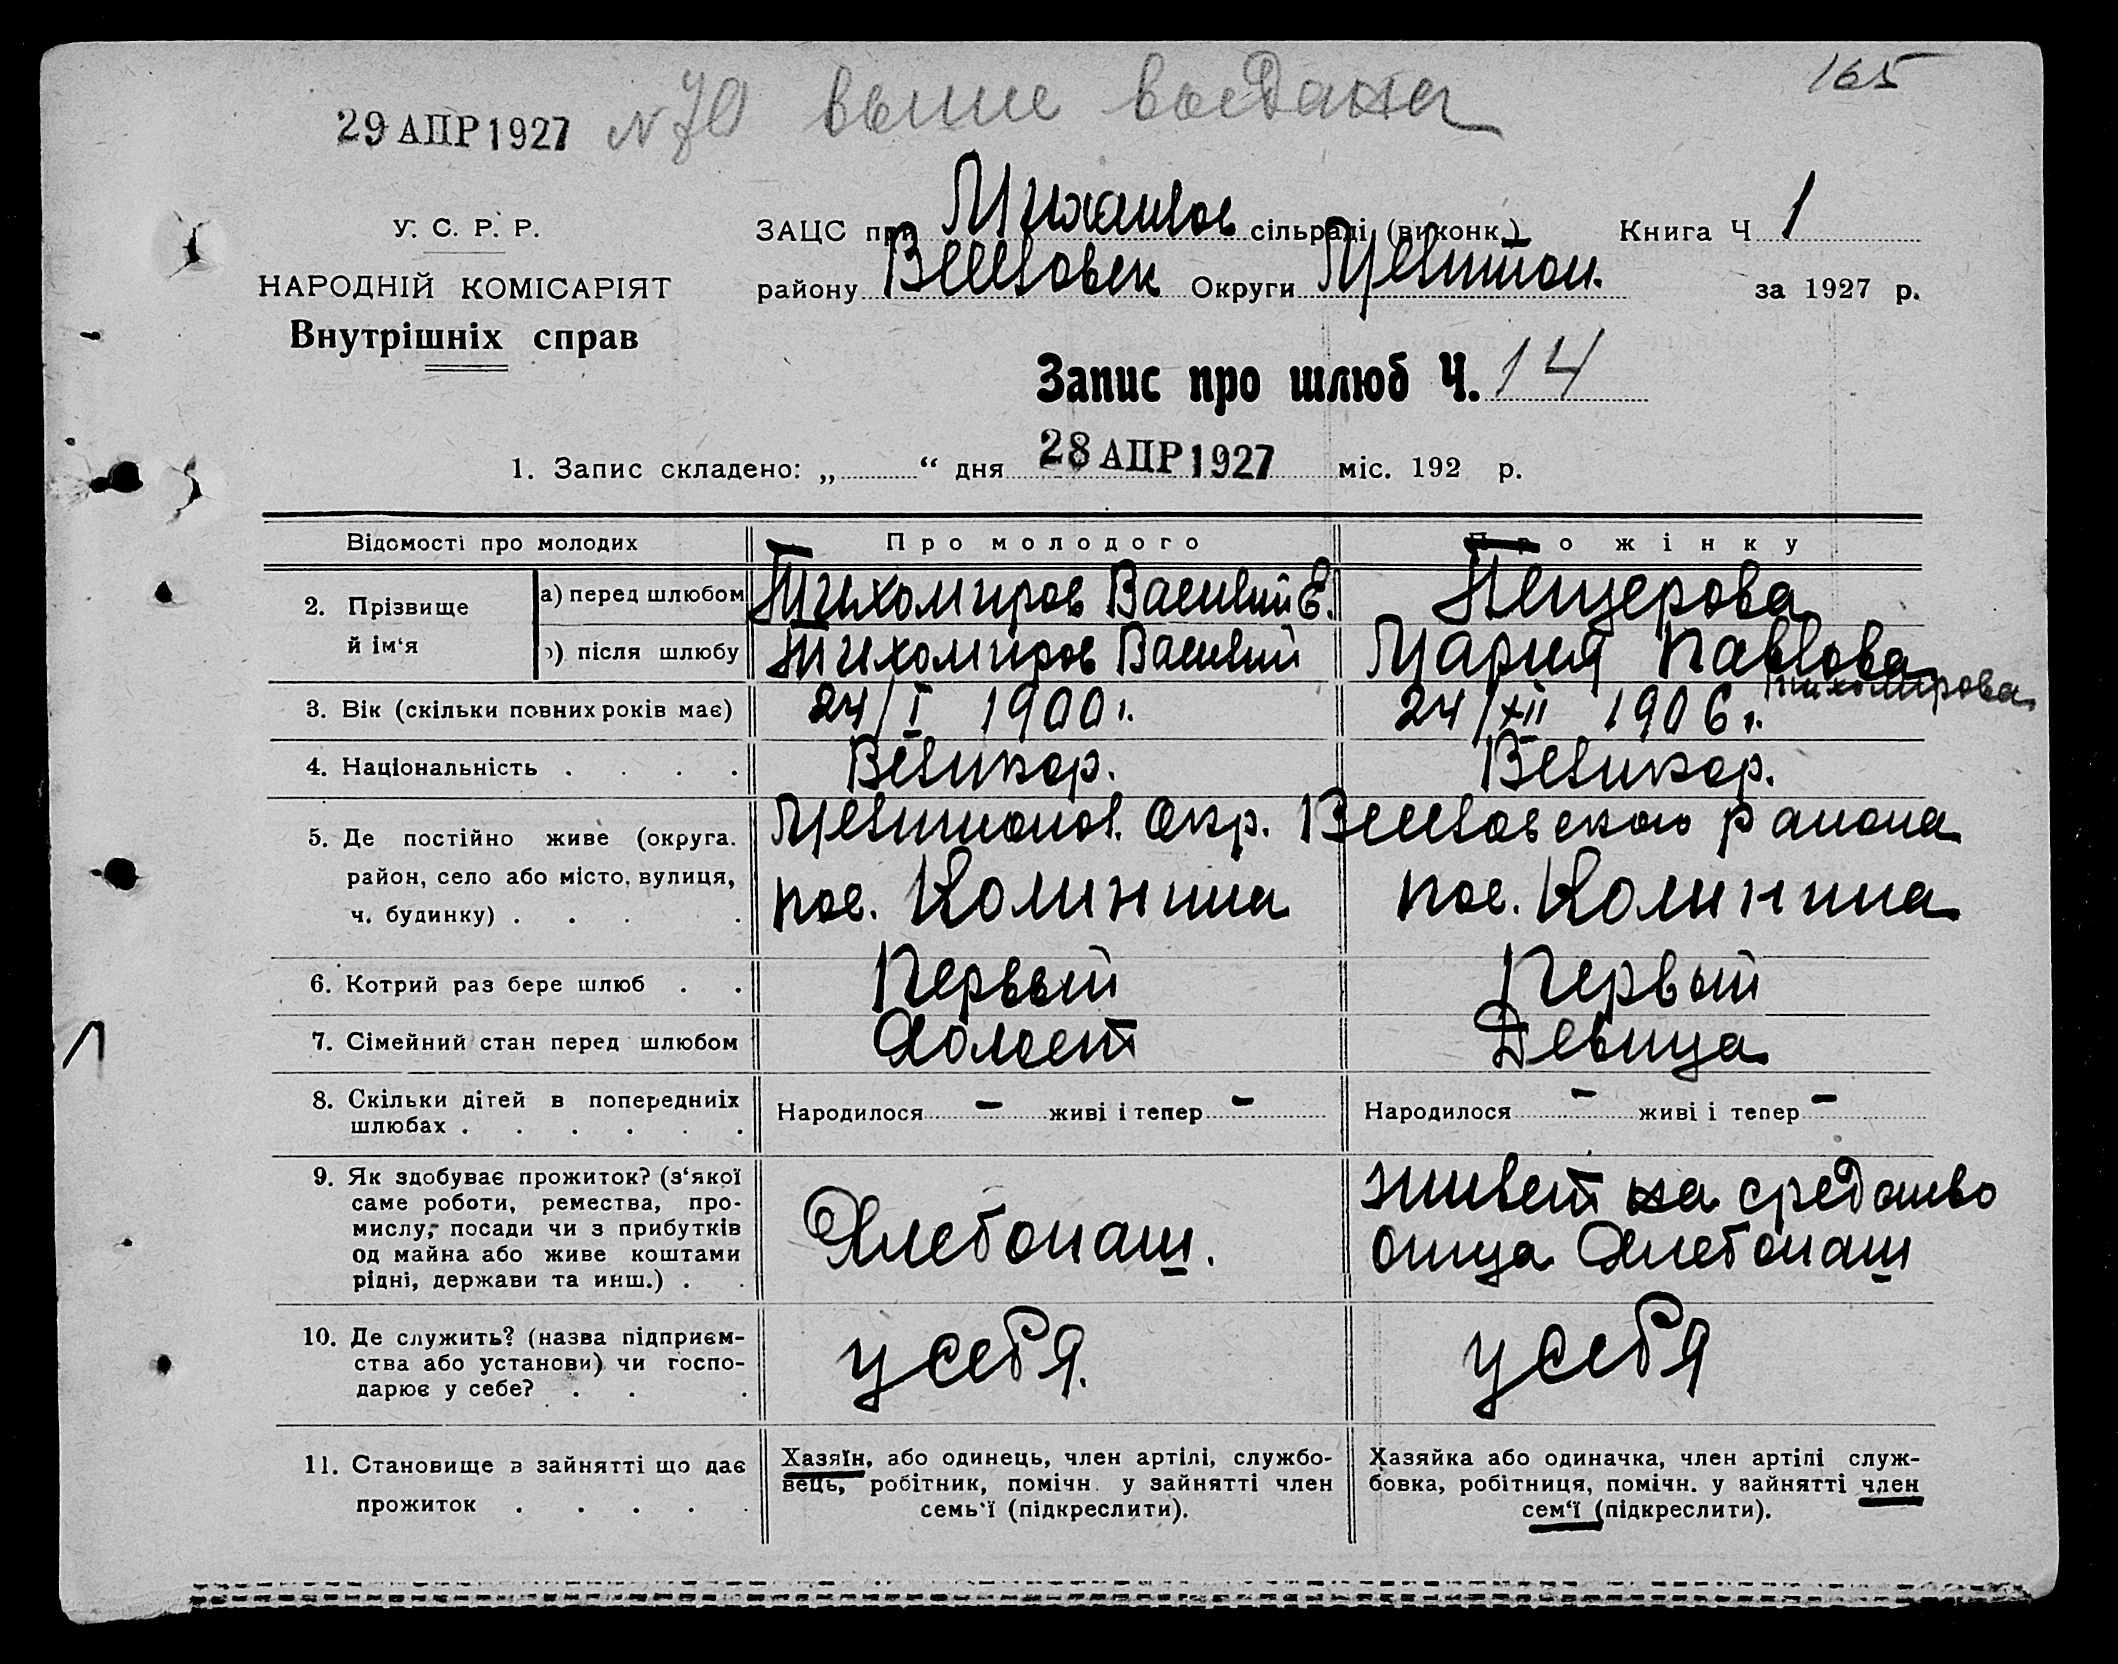 165
29 АПР 1927 N 70 выше выдана
У. С. Р. Р.
НАРОДНІЙ КОМІСАРІЯТ
Внутрішніх справ
ЗАЦС при Михайлов сільраді (виконк.) Книга Ч 1
району Веселовск Округи Мелитоп. за 1927 р.
Запис про шлюб Ч. 14
1. Запис складено: „ “ дня 28 АПР 1927 міс. 192 р.
Відомості про молодих Про молодого Про жінку
2. Прізвище й ім‘я
а) перед шлюбом Тихомиров Василий Е. Пещерова
б) після шлюбу Тихомиров Василий Мария Павлова
Тихомирова
3. Вік (скільки повних років має) 24/I 1900 г. 24/XII 1906 г.
4. Національність . . . . Великор. Великор.
5. Де постійно живе (округа. район, село або місто, вулиця, ч. будинку) . . . .
Мелитопол. Окр. Веселовского района
пос. Колинина пос. Колинина
6. Котрий раз бере шлюб . . Первый Первый
7. Сімейний стан перед шлюбом Холост Девица
8. Скільки дітей в попередниіх шлюбах . . . . . .
Народилося – живі і тепер – Народилося – живі і тепер –
9. Як здобуває прожиток? (з‘якої саме роботи, ремества, промислу, посади чи з прибутків од майна або живе коштами рідні, держави та инш.) . .
Хлебопаш. живет на средство
отца Хлебопаш
10. Де служить? (назва підприєм-
ства або установи) чи госпо-
дарює у себе? . . .
у себя. у себя
11. Становище в зайнятті що дає
прожиток . . . . .
Хазяїн, або одинець, член артілі, службо-
вець, робітник, помічн. у зайнятті член
семь‘ї (підкреслити).
Хазяйка або одиначка, член артілі служ-
бовка, робітниця, помічн. у зайнятті член
сем‘ї (підкреслити).